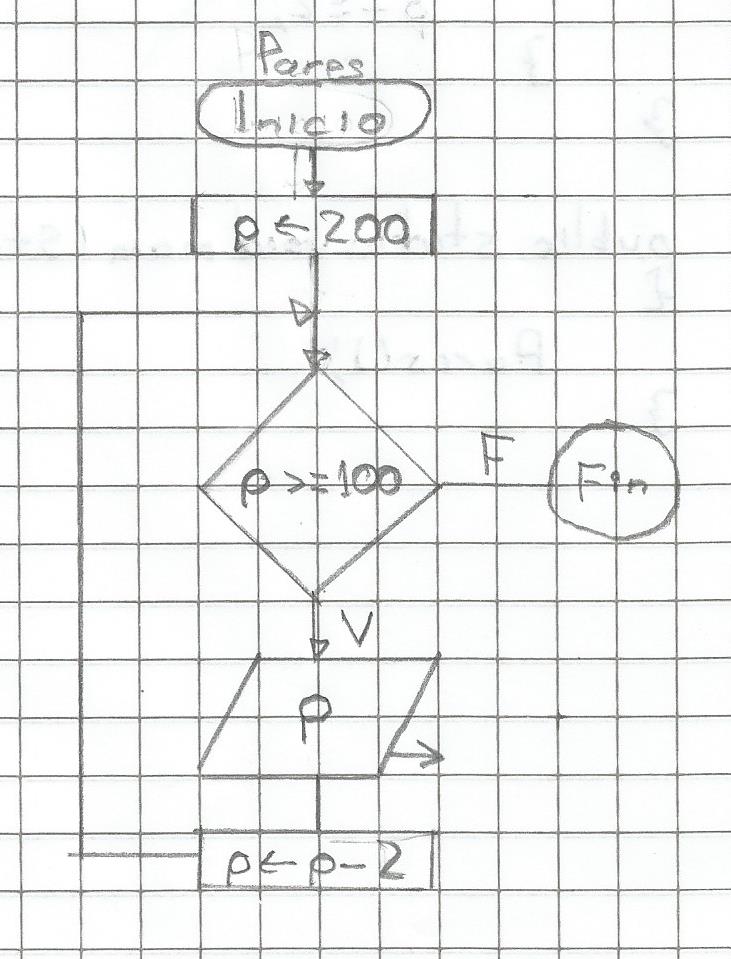 Pares
Inicio
p ← 200
p >= 100
F
Fin
V
p
p ← p - 2